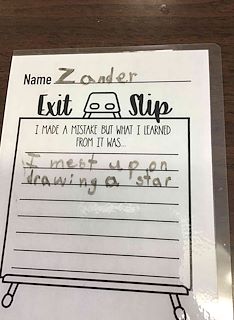 Name Zander
Exit Slip
I MADE A MISTAKE BUT WHAT I LEARNED
FROM IT WAS...
I mest up on
drawing a star